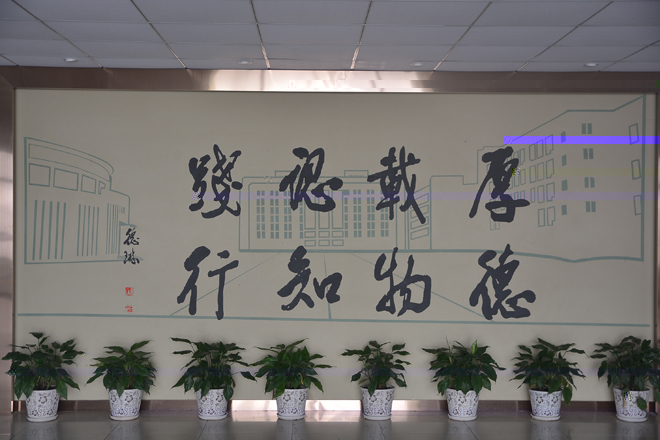 厚德
載物
認知
踐行